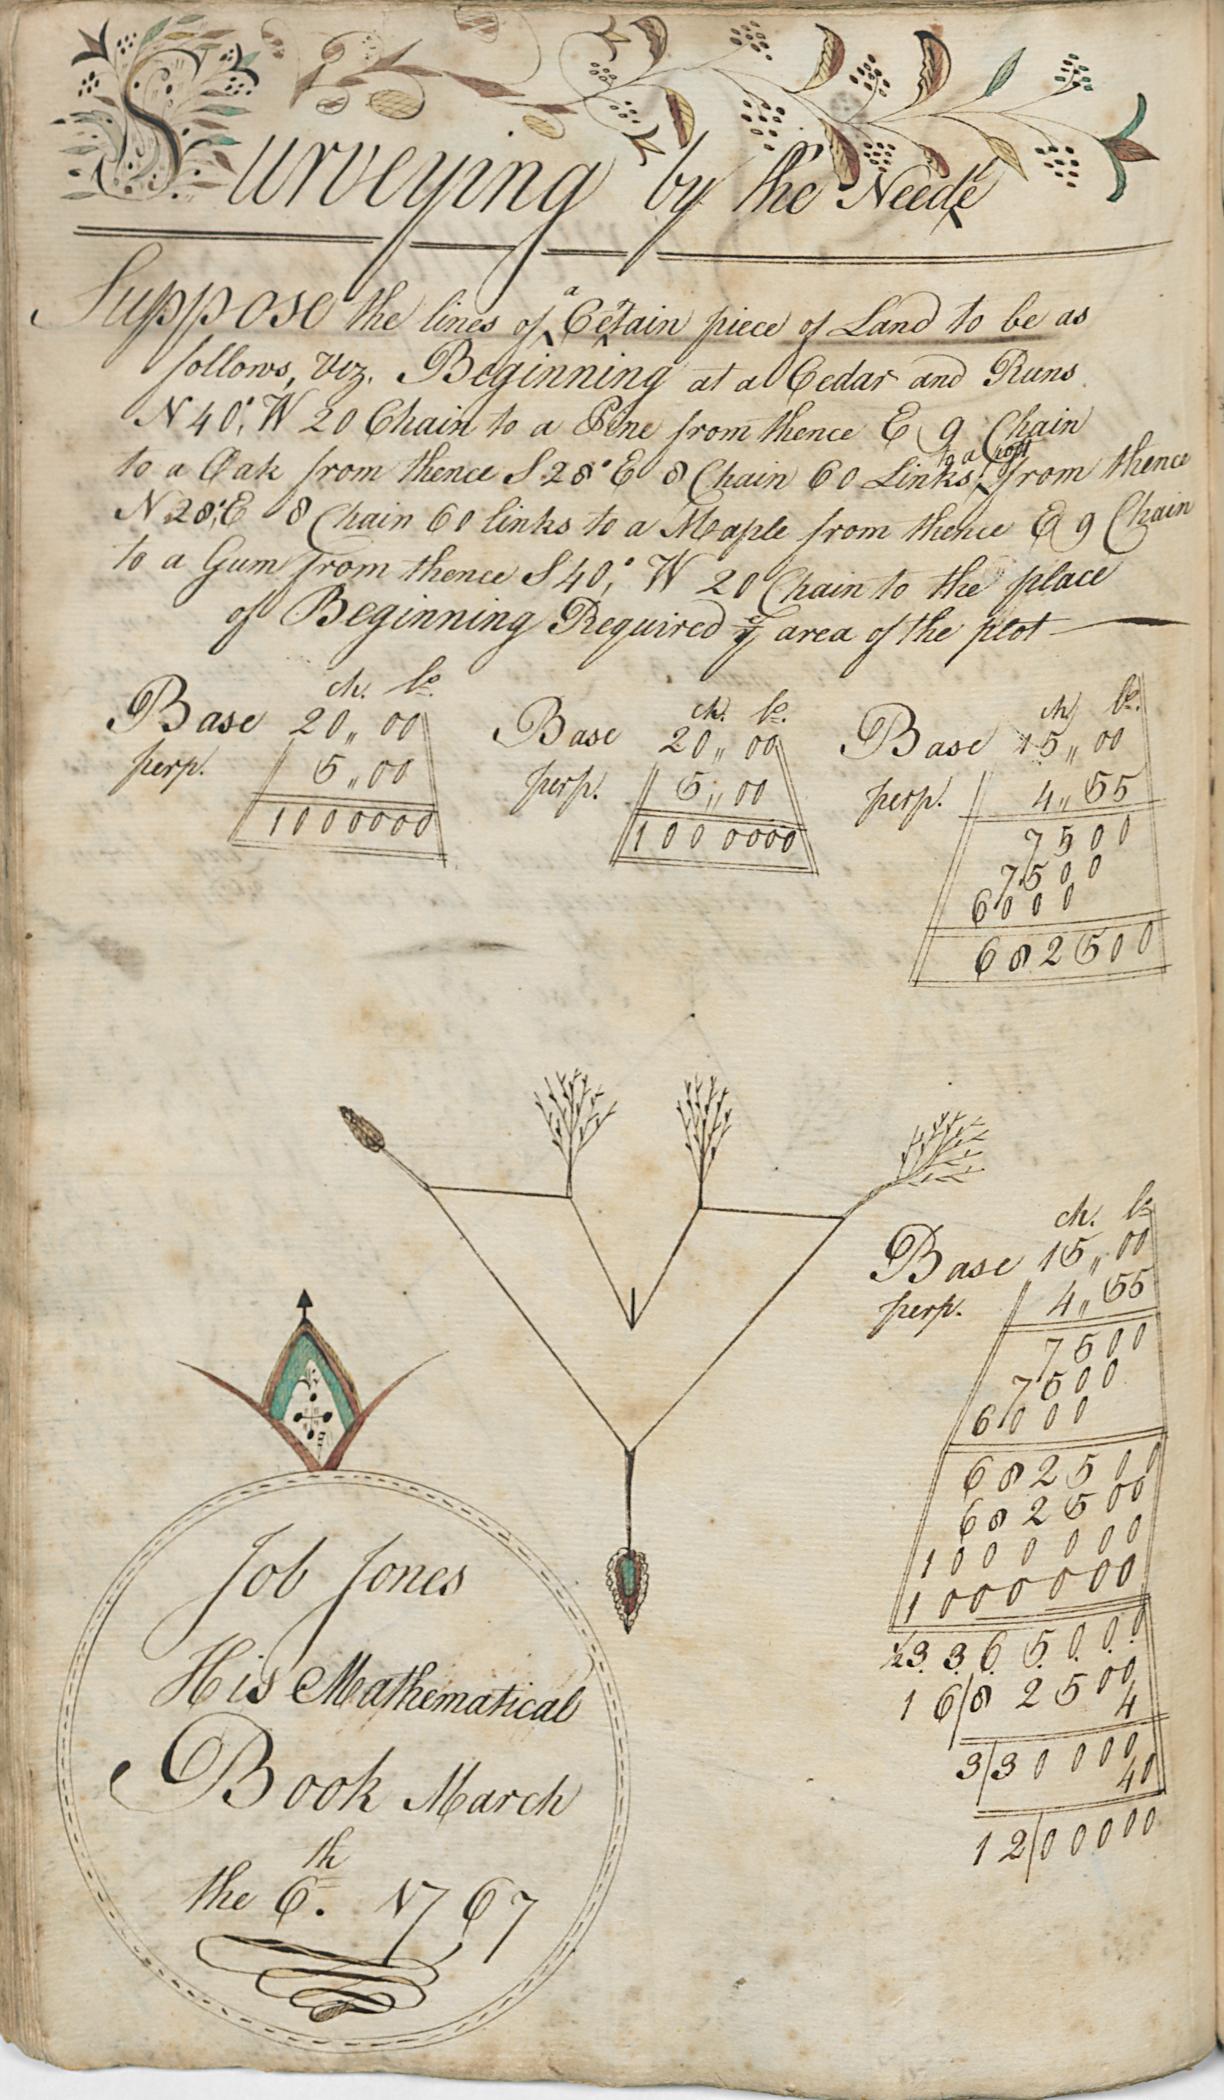 Surveying by the Neede
Suppose the lines of a Certain piece of Land to be as
follows, viz. Beginning at a Cedar and Runs
N 40°, W 20 Chain to a Pine from thence E 9 Chain
to a Oak from thence S 28° E 8 Chain 60 Links to a Post from thence
N 28° E 8 Chain 60 links to a Maple from thence E 9 Chain
to a Gum from thence S 40° W 20 Chain to the place
of Beginning Required ye area of the plot
ch. l.
Base 20,, 00
perp. 5,, 00
1000000
ch. l.
Base 20,, 00
perp. 5,, 00
1000000
ch. l.
Base 15,, 00
perp. 4,, 55
7500
7500
6000
682500
ch. l.
Base 15,, 00
perp. 4,, 55
7500
7500
6000
682500
682500
1000000
1000000
½ 3365000
16/82500
4
3/30000
40
12/00000
Job Jones
His Mathematical
Book March
the 6th. 1767